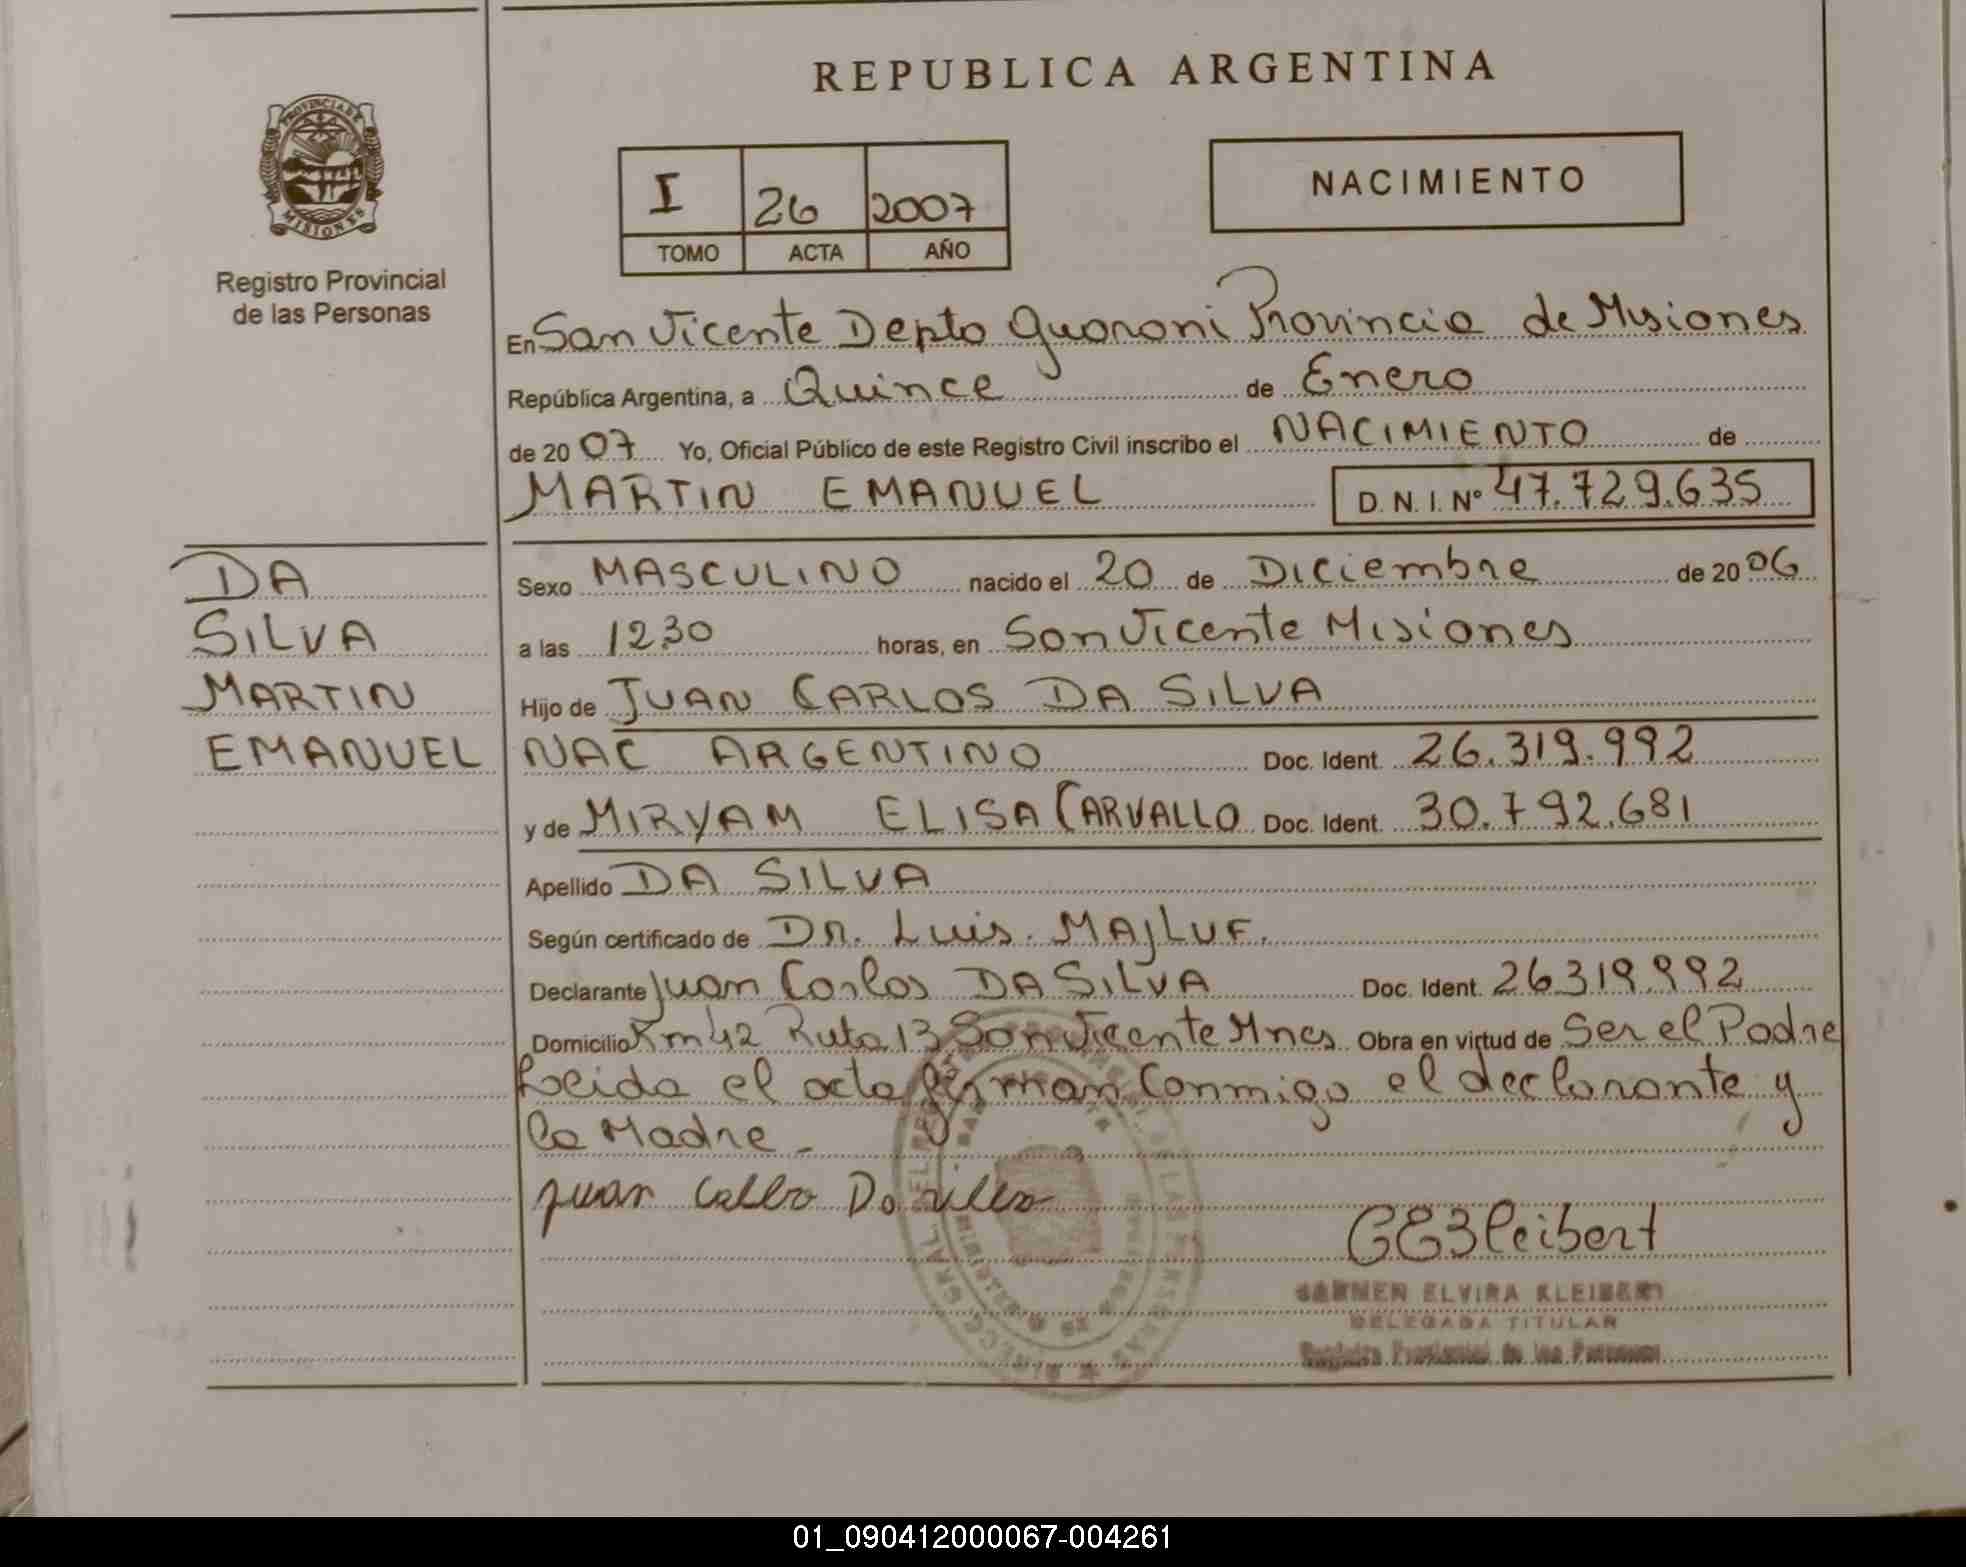 REPUBLICA ARGENTINA
PROVINCIA DE MISIONES
Registro Provincial
de las Personas
I 26 2007
TOMO ACTA AÑO
NACIMIENTO
En San Vicente Depto Guarani Provincia de Misiones
República Argentina, a Quince de Enero
de 20 07 Yo, Oficial Público de este Registro Civil inscribo el NACIMIENTO de
MARTIN EMANUEL D. N. I. Nº 47.729.635
DA
SILVA
MARTIN
EMANUEL
Sexo MASCULINO nacido el 20 de Diciembre de 20 06
a las 12.30 horas, en San Vicente Misiones
Hijo de JUAN CARLOS DA SILVA
NAC ARGENTINO Doc. Ident. 26.319.992
y de MIRYAM ELISA CARVALLO Doc. Ident. 30.792.681
Apellido DA SILVA
Según certificado de Dr. Luis. MAJLUF.
Declarante Juan Carlos DA SILVA Doc. Ident. 26319.992
Domicilio Km 42 Ruta 13 San Vicente Mnes Obra en virtud de Ser el Padre
Leida el acta firman Conmigo el declarante y
la Madre -
Juan
CEKleibert
CARMEN ELVIRA KLEIBERT
DELEGADA TITULAR
Registro Provincial de las Personas
01_090412000067-004261